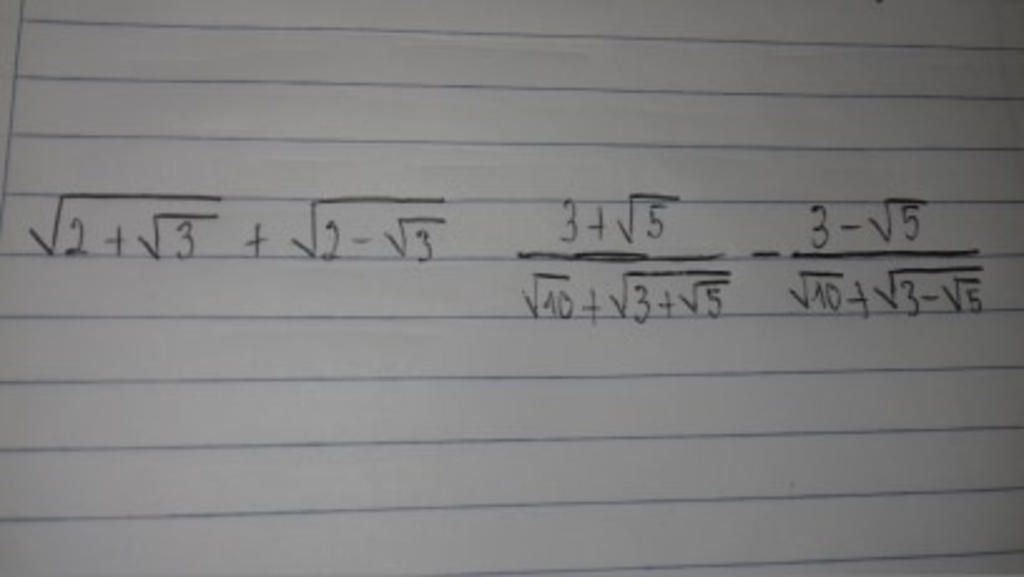 √(2+√3) + √(2-√3)    (3+√5)/(√10+√(3+√5)) - (3-√5)/(√10+√(3-√5))